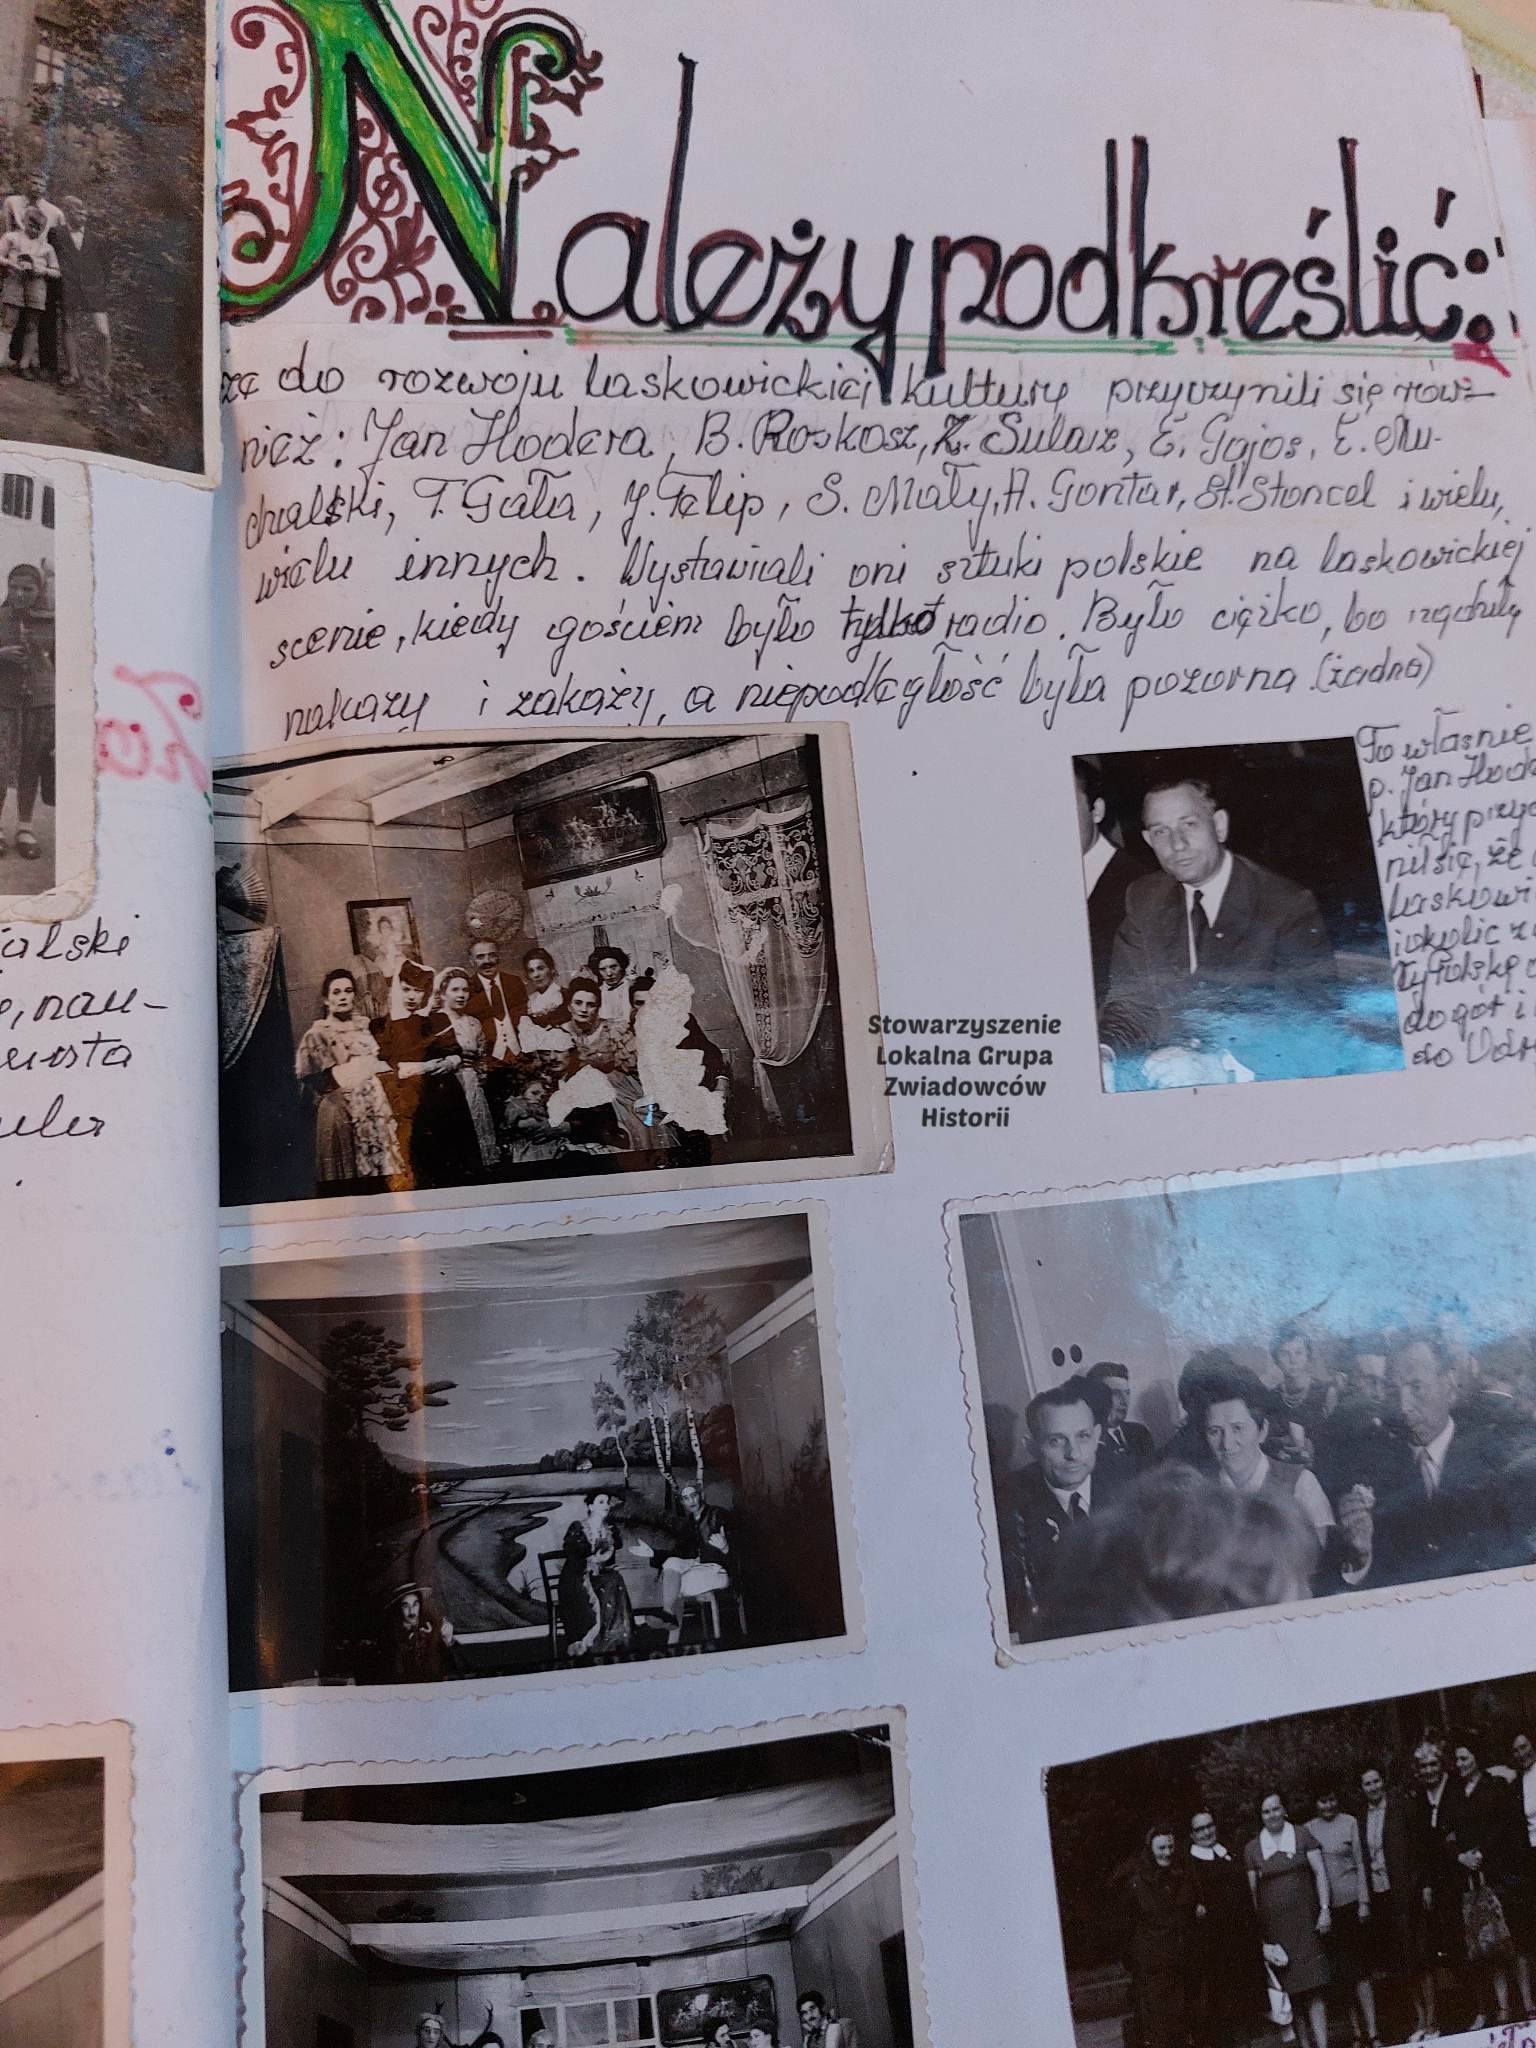 Należy podkreślić:
że do rozwoju laskowickiej kultury przyczynili się rów-
nież: Jan Hodera, B. Roskosz, Z. Sulaz, E. Gajos, E. Mu-
chalski, T. Gała, J. Felip, S. Mały, A. Gontar, St. Stoncel i wielu,
wielu innych. Wystawiali oni sztuki polskie na laskowickiej
scenie, kiedy gościem było tylko radio. Było ciężko, bo rządziły
nakazy i zakazy, a niepodległość była pozorna (żadna)
To właśnie
p. Jan Hode
który przyc
nił się, że
Laskowi
i okolic z
do gór i
do Odr
Stowarzyszenie
Lokalna Grupa
Zwiadowców
Historii
alski
nau-